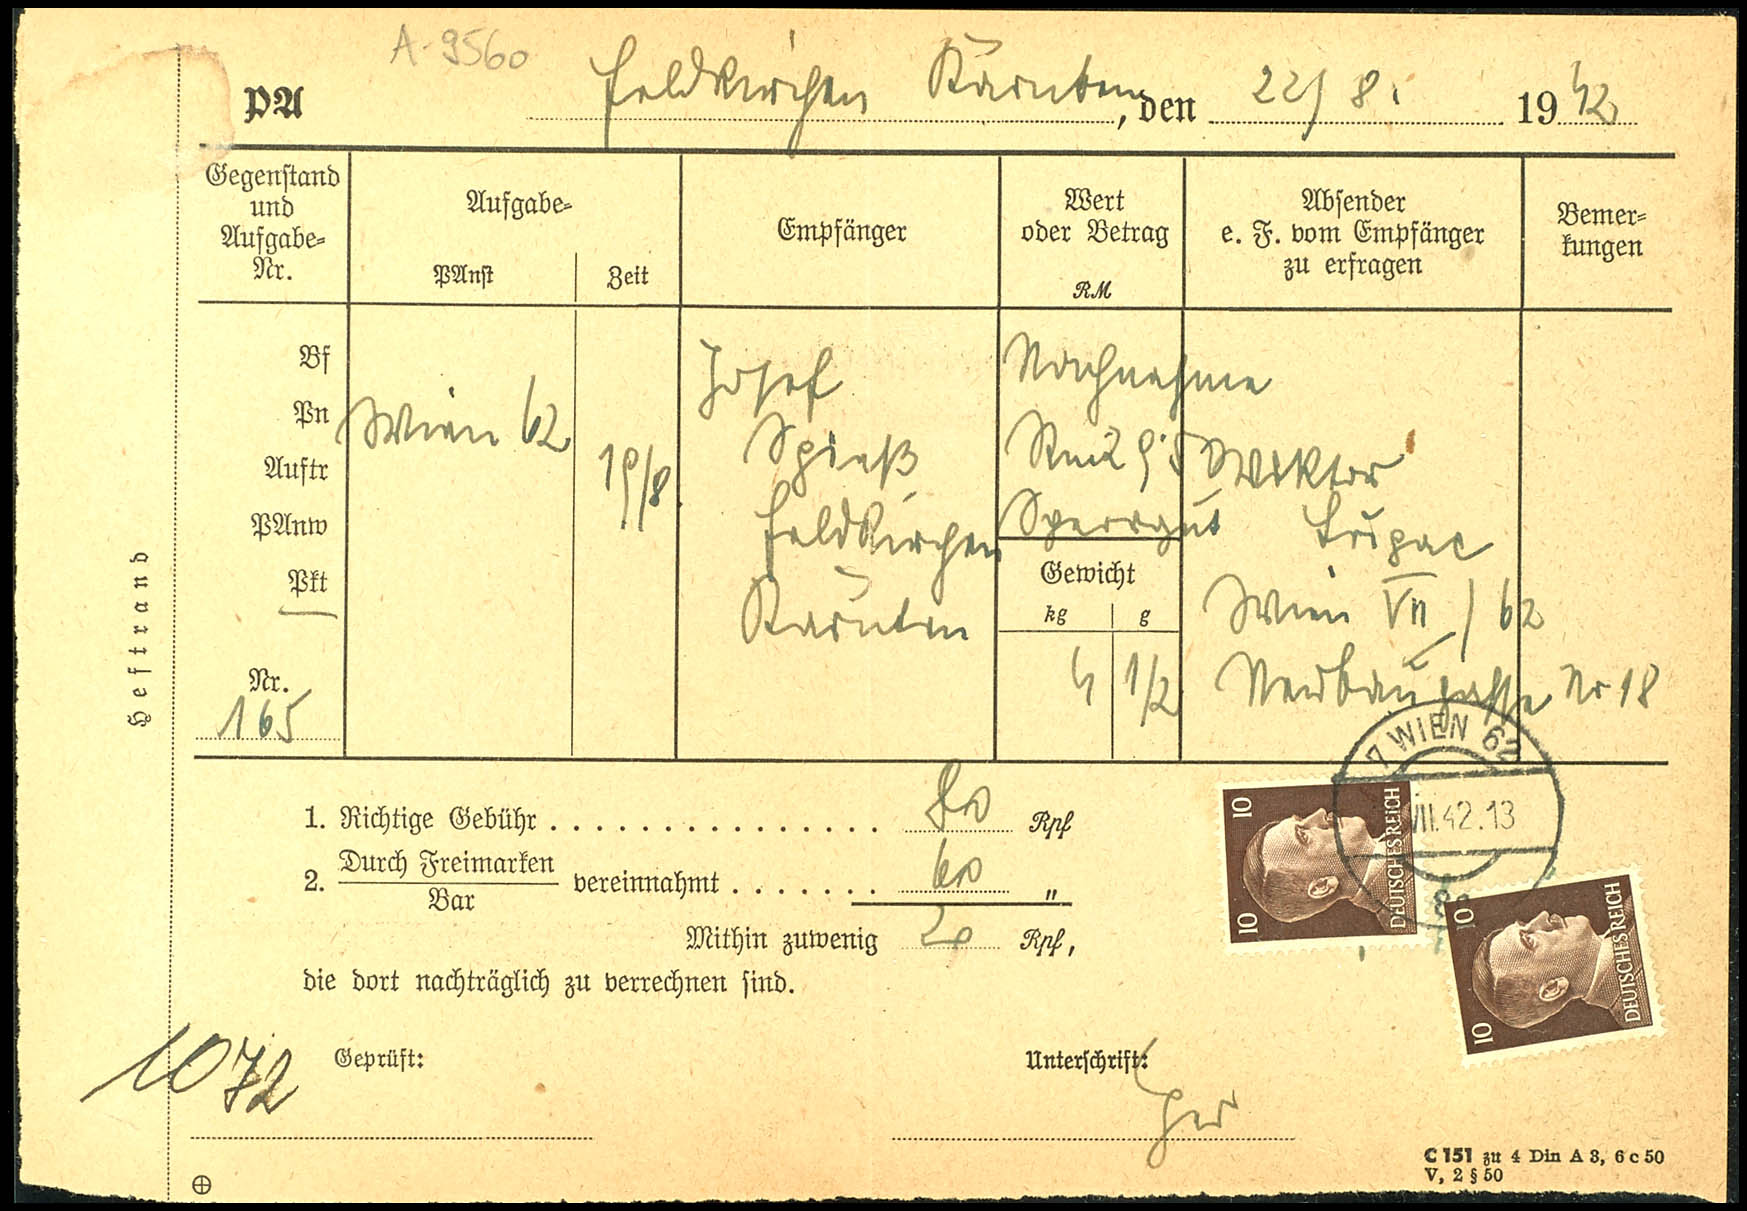 A-9560
PA Feldkirchen Kärnten, den 22/8. 1942
Gegenstand und Aufgabe-Nr.
Aufgabe-
PAnst
Zeit
Empfänger
Wert oder Betrag
RM
Absender e. F. vom Empfänger zu erfragen
Bemer-kungen
Bf
Pn
Auftr
PAnw
Pkt
Nr.
165
Wien 62
19/8.
Josef
Spieß
Feldkirchen
Kärnten
Nachnahme
Sperrgut
Gewicht
kg g
4 1/2
Wiktor
Wien VII / 62
Neubaugasse Nr 18
Heftrand
7 WIEN 62
VII.42.13
10 DEUTSCHES REICH 10
10 DEUTSCHES REICH 10
1. Richtige Gebühr . . . . . . . . . . . . . . . . 80 Rpf
2. Durch Freimarken
Bar
vereinnahmt . . . . . . . 60 "
Mithin zuwenig 20 Rpf,
die dort nachträglich zu verrechnen sind.
1072
Geprüft:
Unterschrift:
C 151 zu 4 Din A 3, 6 c 50
V, 2 § 50